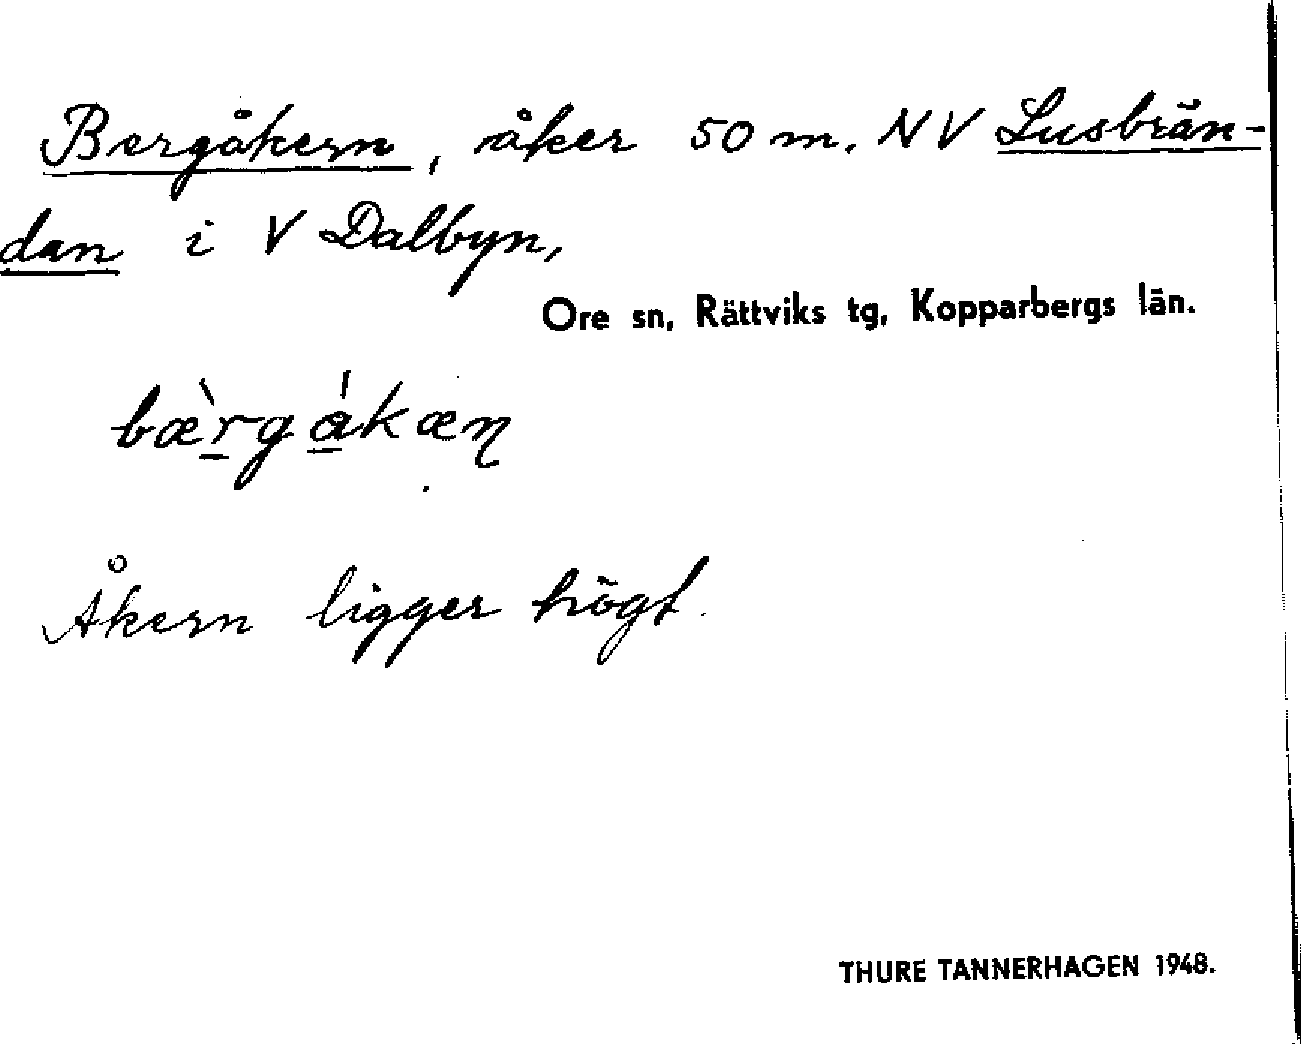 Bergåkern, åker 50 m. NV Lusbrän-
dan i V Dalbyn,
Ore sn, Rättviks tg, Kopparbergs län.
bæ̀rgákæn
Åkern ligger högt.
THURE TANNERHAGEN 1948.